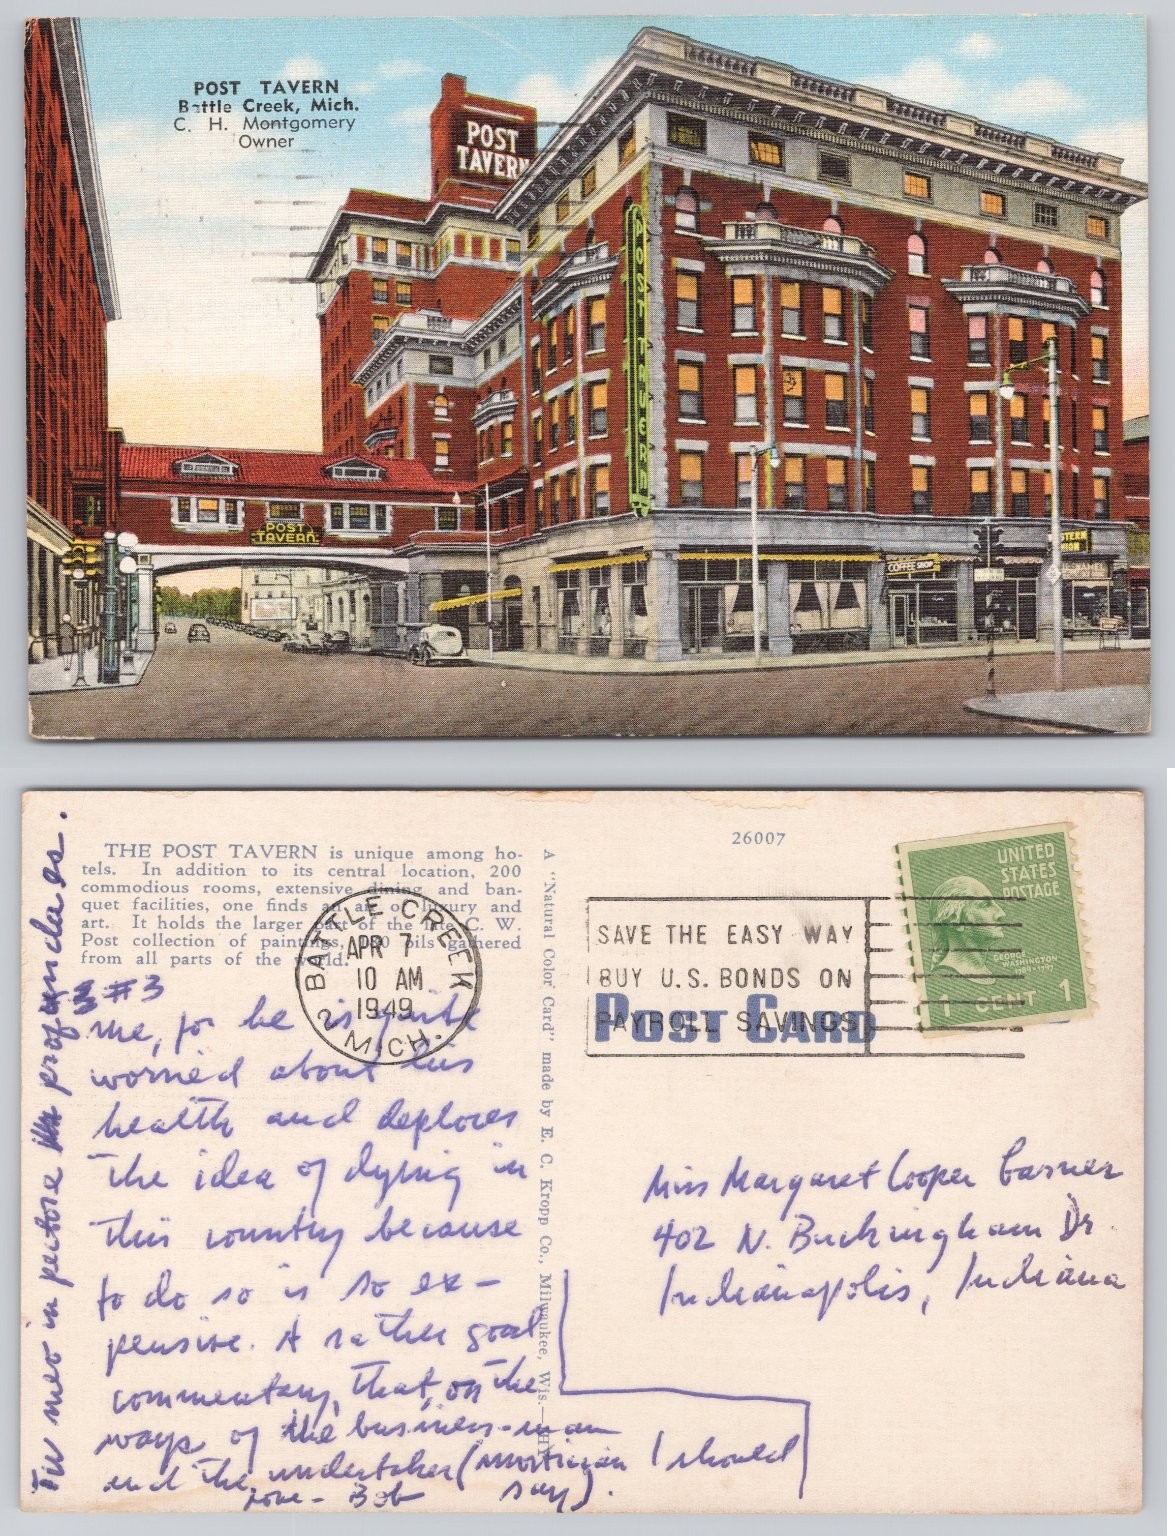 POST TAVERN
Battle Creek, Mich.
C. H. Montgomery
Owner
POST
TAVERN
POST TAVERN
POST
TAVERN
COFFEE SHOP
26007
THE POST TAVERN is unique among ho-
tels. In addition to its central location, 200
commodious rooms, extensive dining and ban-
quet facilities, one finds an air of luxury and
art. It holds the larger part of the late C. W.
Post collection of paintings, oils gathered
from all parts of the world.
A "Natural Color Card" made by E. C. Kropp Co., Milwaukee, Wis.
BATTLE CREEK
APR 7
10 AM
1949
2 MICH.
SAVE THE EASY WAY
BUY U.S. BONDS ON
PAYROLL SAVINGS
POST CARD
UNITED
STATES
POSTAGE
GEORGE
WASHINGTON
1789-1797
1 CENT 1
#3
me, for he is quite
worried about his
health and deplores
the idea of dying in
this country because
to do so is so ex-
pensive. A rather good
commentary, that, on the
ways of the business-man
and the undertaker (mortician I should
say).
Love - Bob
Tu meo in pectore profundas.
Miss Margaret Cooper Garner
402 N. Buckingham Dr.
Indianapolis, Indiana